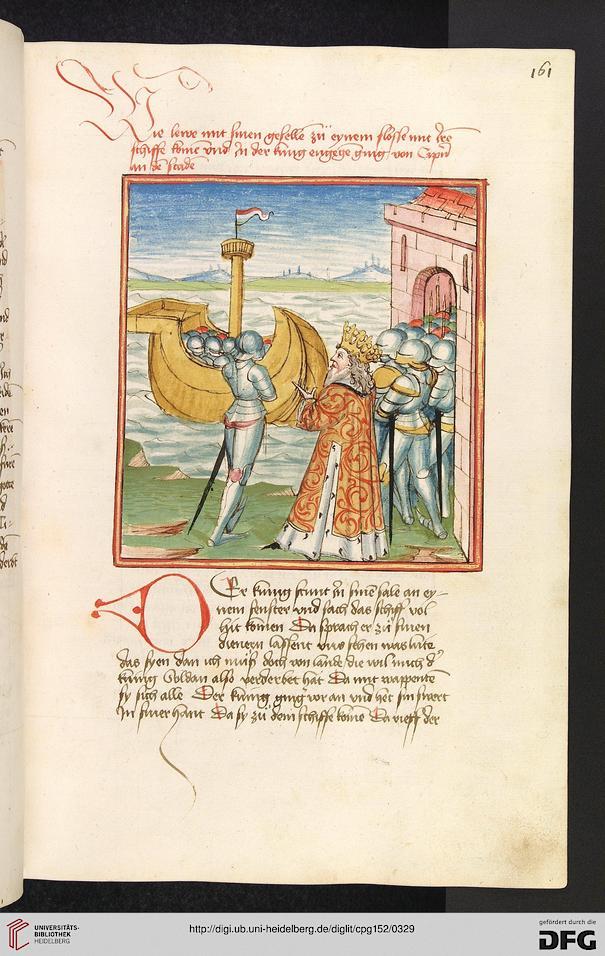 161
Wie lewe mit sinen geselle zü eynem slosse mit dre
schiffe kome vnd jn der kunig engege ging von Cipn
an de stade
Der kunig stunt jn sine sale an ey-
nem fenster vnd sach das schiff vol
lut komen Da sprach er zü sinen
dienern lassent vns sehen was lute
das syen dan ich muß doch von lande die wil mich d'
kunig also verderbet hat Da mit wappente
sy sich alle Der kunig ging vor an vnd het sin swert
jn siner hant Da sy zü dem schiffe kome Da rieff der
UNIVERSITÄTS-
BIBLIOTHEK
HEIDELBERG
http://digi.ub.uni-heidelberg.de/diglit/cpg152/0329
gefördert durch die
DFG